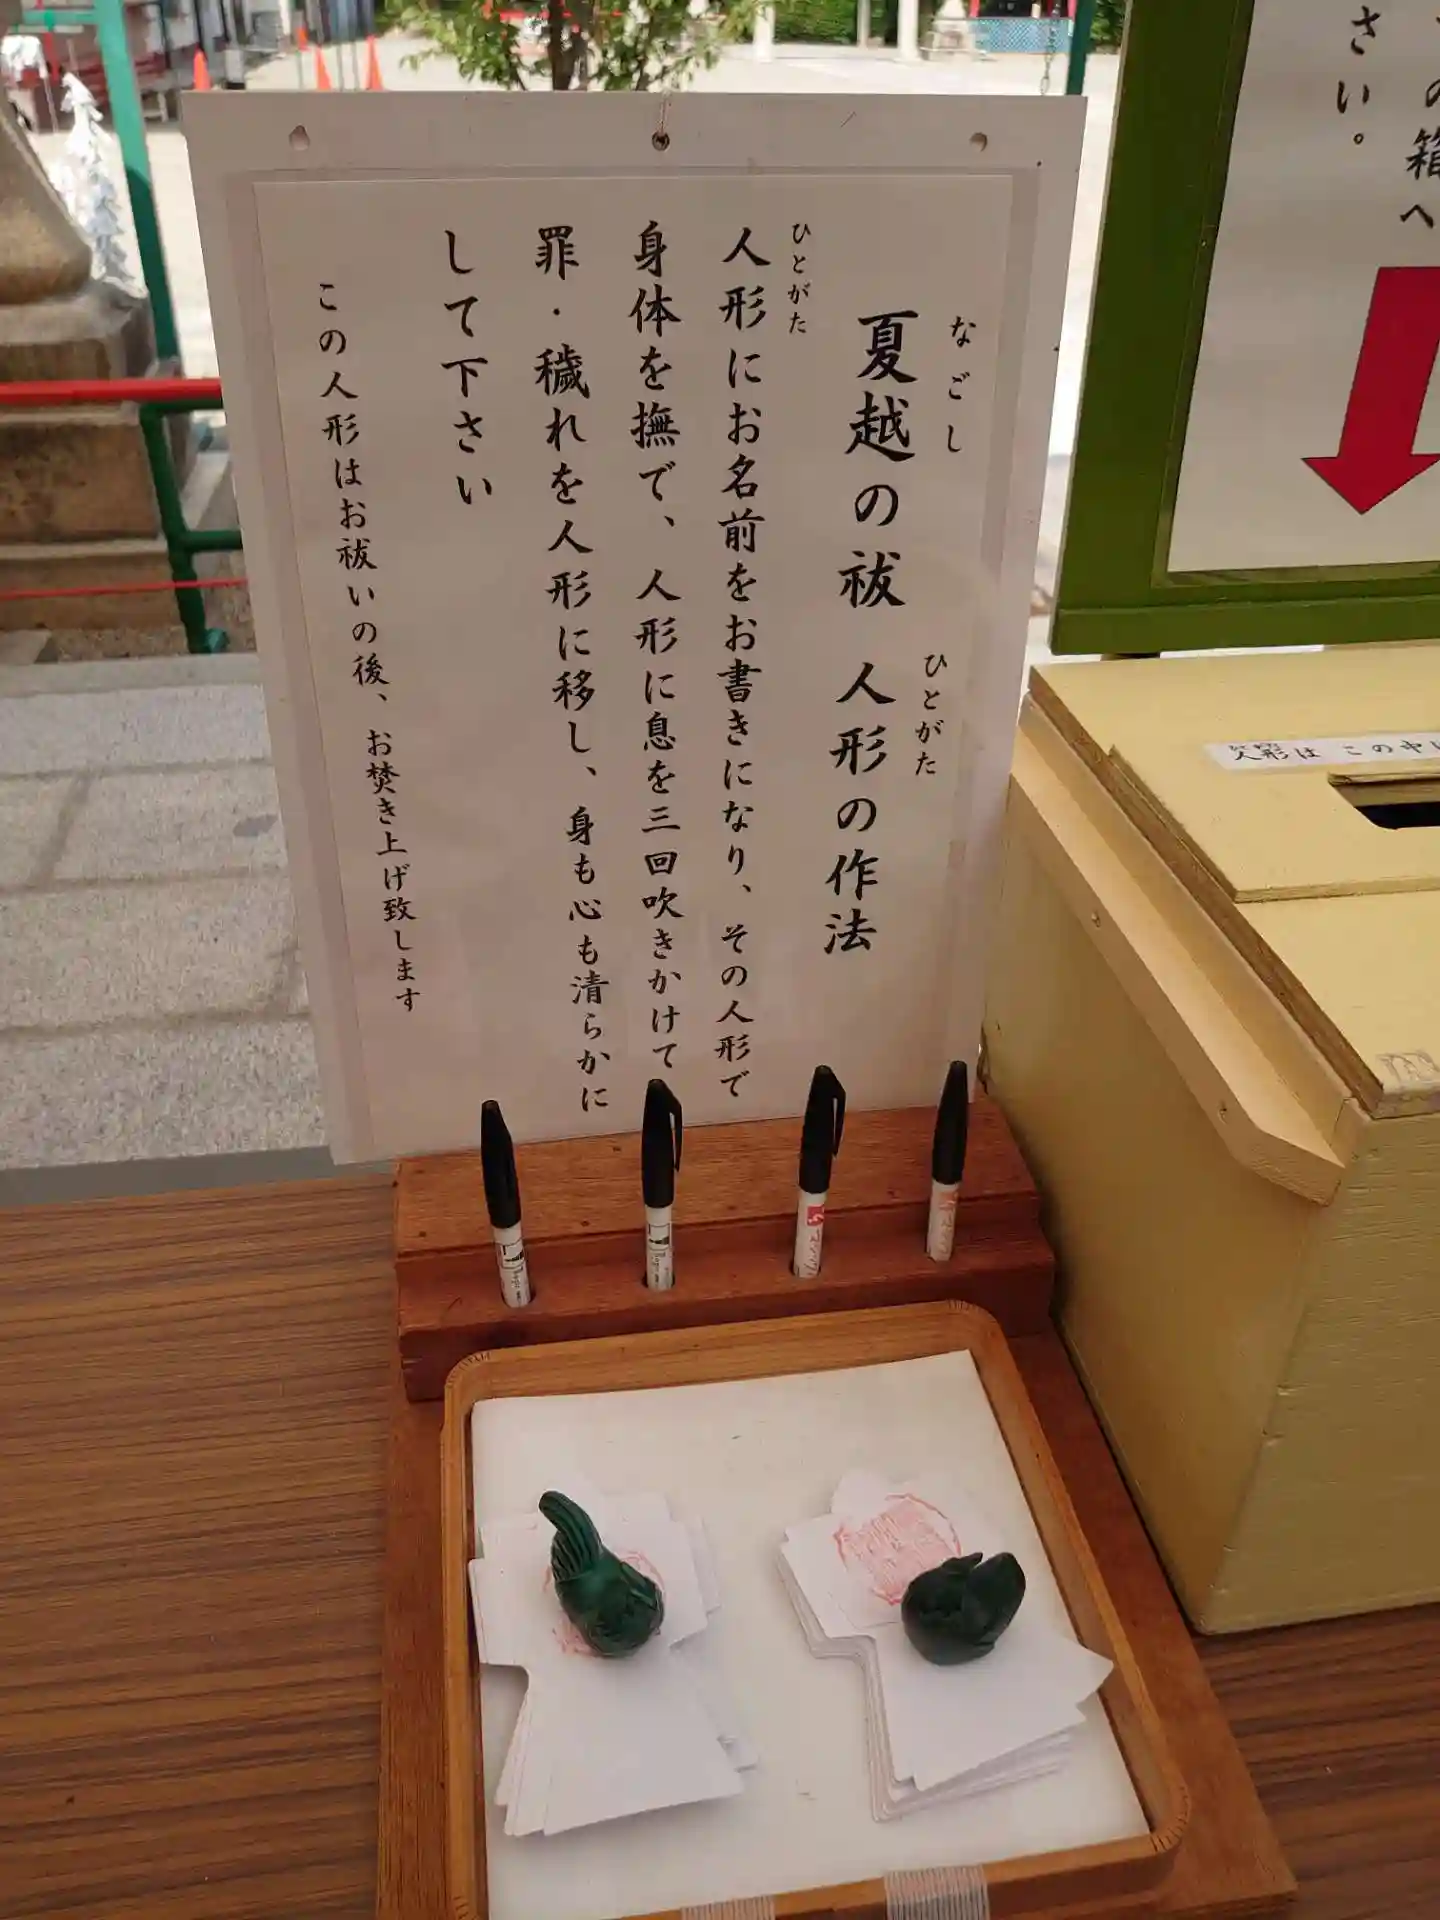 さい。
の箱へ
人形は この中に
なごし
ひとがた
夏越の祓 人形の作法
ひとがた
人形にお名前をお書きになり、その人形で
身体を撫で、人形に息を三回吹きかけて
罪・穢れを人形に移し、身も心も清らかに
して下さい
この人形はお祓いの後、お焚き上げ致します